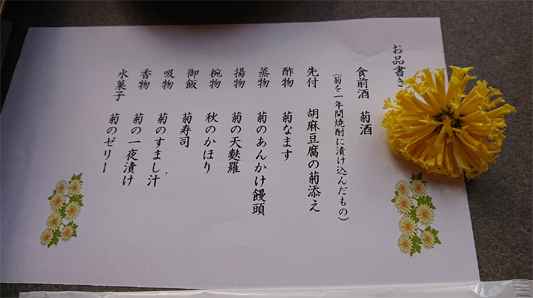 お品書き
食前酒 菊酒
(菊を一年間焼酎に漬け込んだもの)
先付 胡麻豆腐の菊添え
酢物 菊なます
蒸物 菊のあんかけ饅頭
揚物 菊の天麩羅
椀物 秋のかほり
御飯 菊寿司
吸物 菊のすまし汁
香物 菊の一夜漬け
水菓子 菊のゼリー